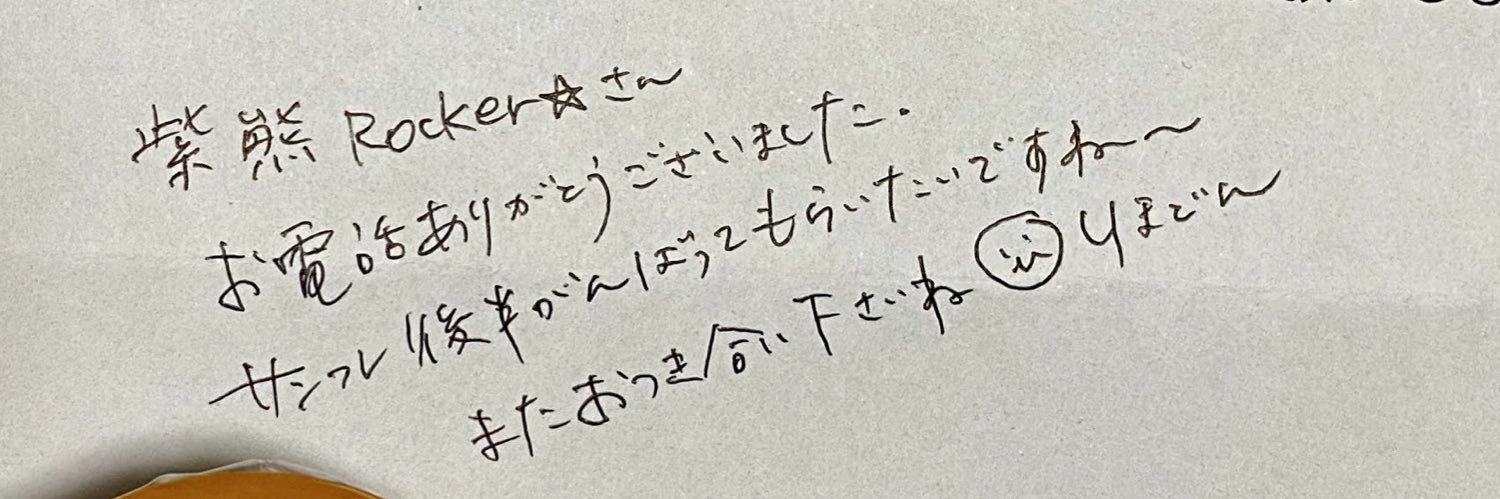 紫熊Rocker☆さん
お電話ありがとうございました.
サンフレ後半がんばってもらいたいですね～
またおつき合い下さいね